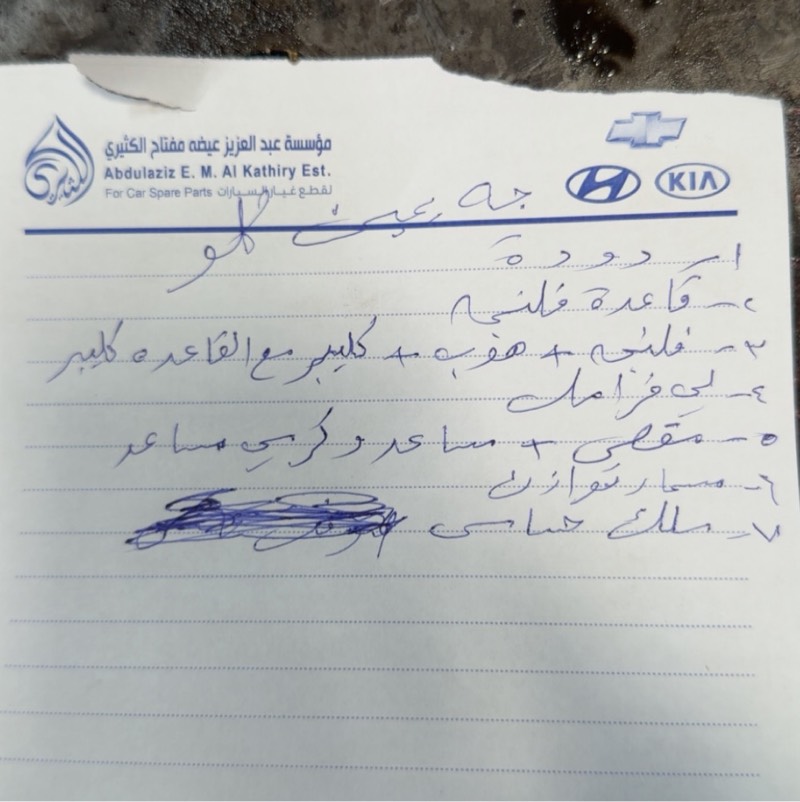 مؤسسة عبد العزيز عيضه مفتاح الكثيري
Abdulaziz E. M. Al Kathiry Est.
For Car Spare Parts لقطع غيار السيارات
KIA
جه يمين
١ـ دودة
٢ـ قاعدة فلنجه
٣ـ فلنجه + هوب + كليبر مع القاعده كليبر
٤ـ لي فرامل
٥ـ مقص + مساعد وكرسي مساعد
٦ـ مسمار توازن
٧ـ سلك حساس